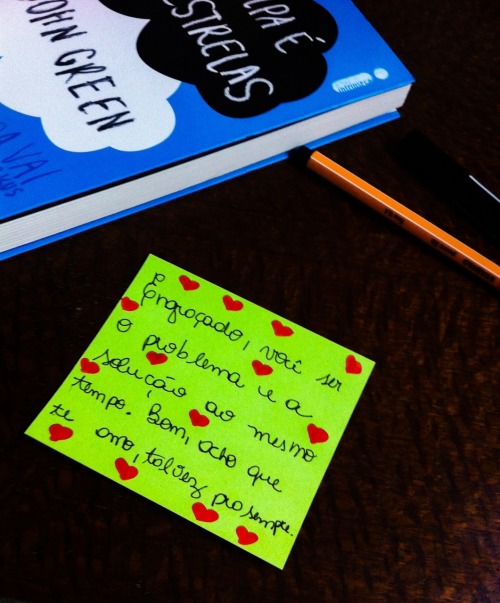 LPA É
ESTRELAS
JOHN GREEN
VAI
intrínseca
É
Engraçado, você ser
o problema e a
solução ao mesmo
tempo. Bom, acho que
te amo, talvez pra sempre.